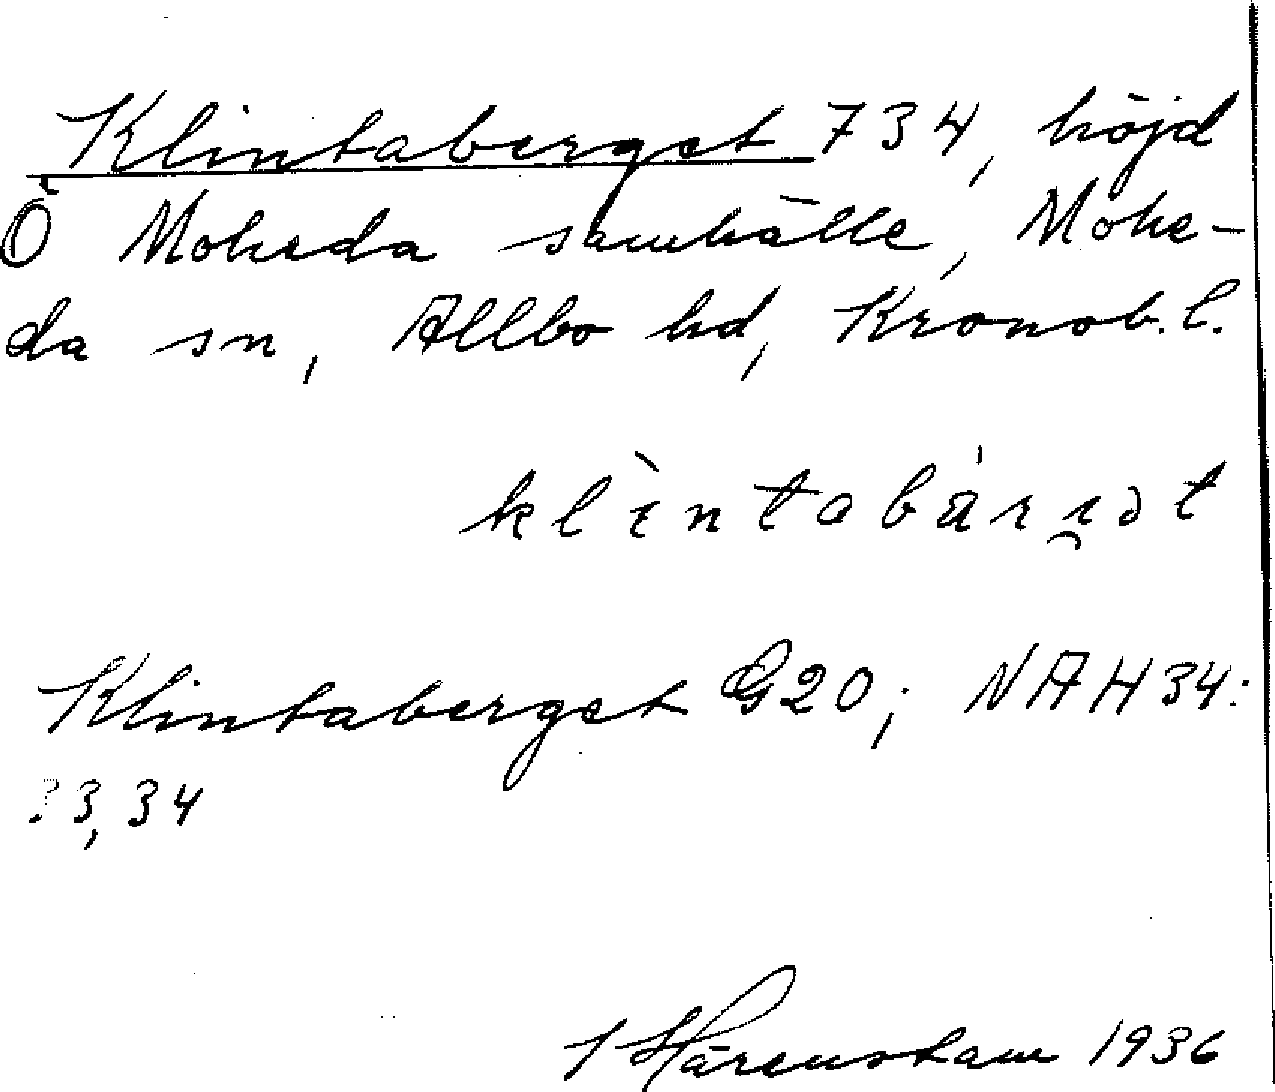 Klintaberget 734, höjd
Ö Moheda samhälle, Mohe-
da sn, Allbo hd, Kronob. l.
klìntabá̈ri̯ət
Klintaberget G20; NAH 34:
33, 34
Härenstam 1936